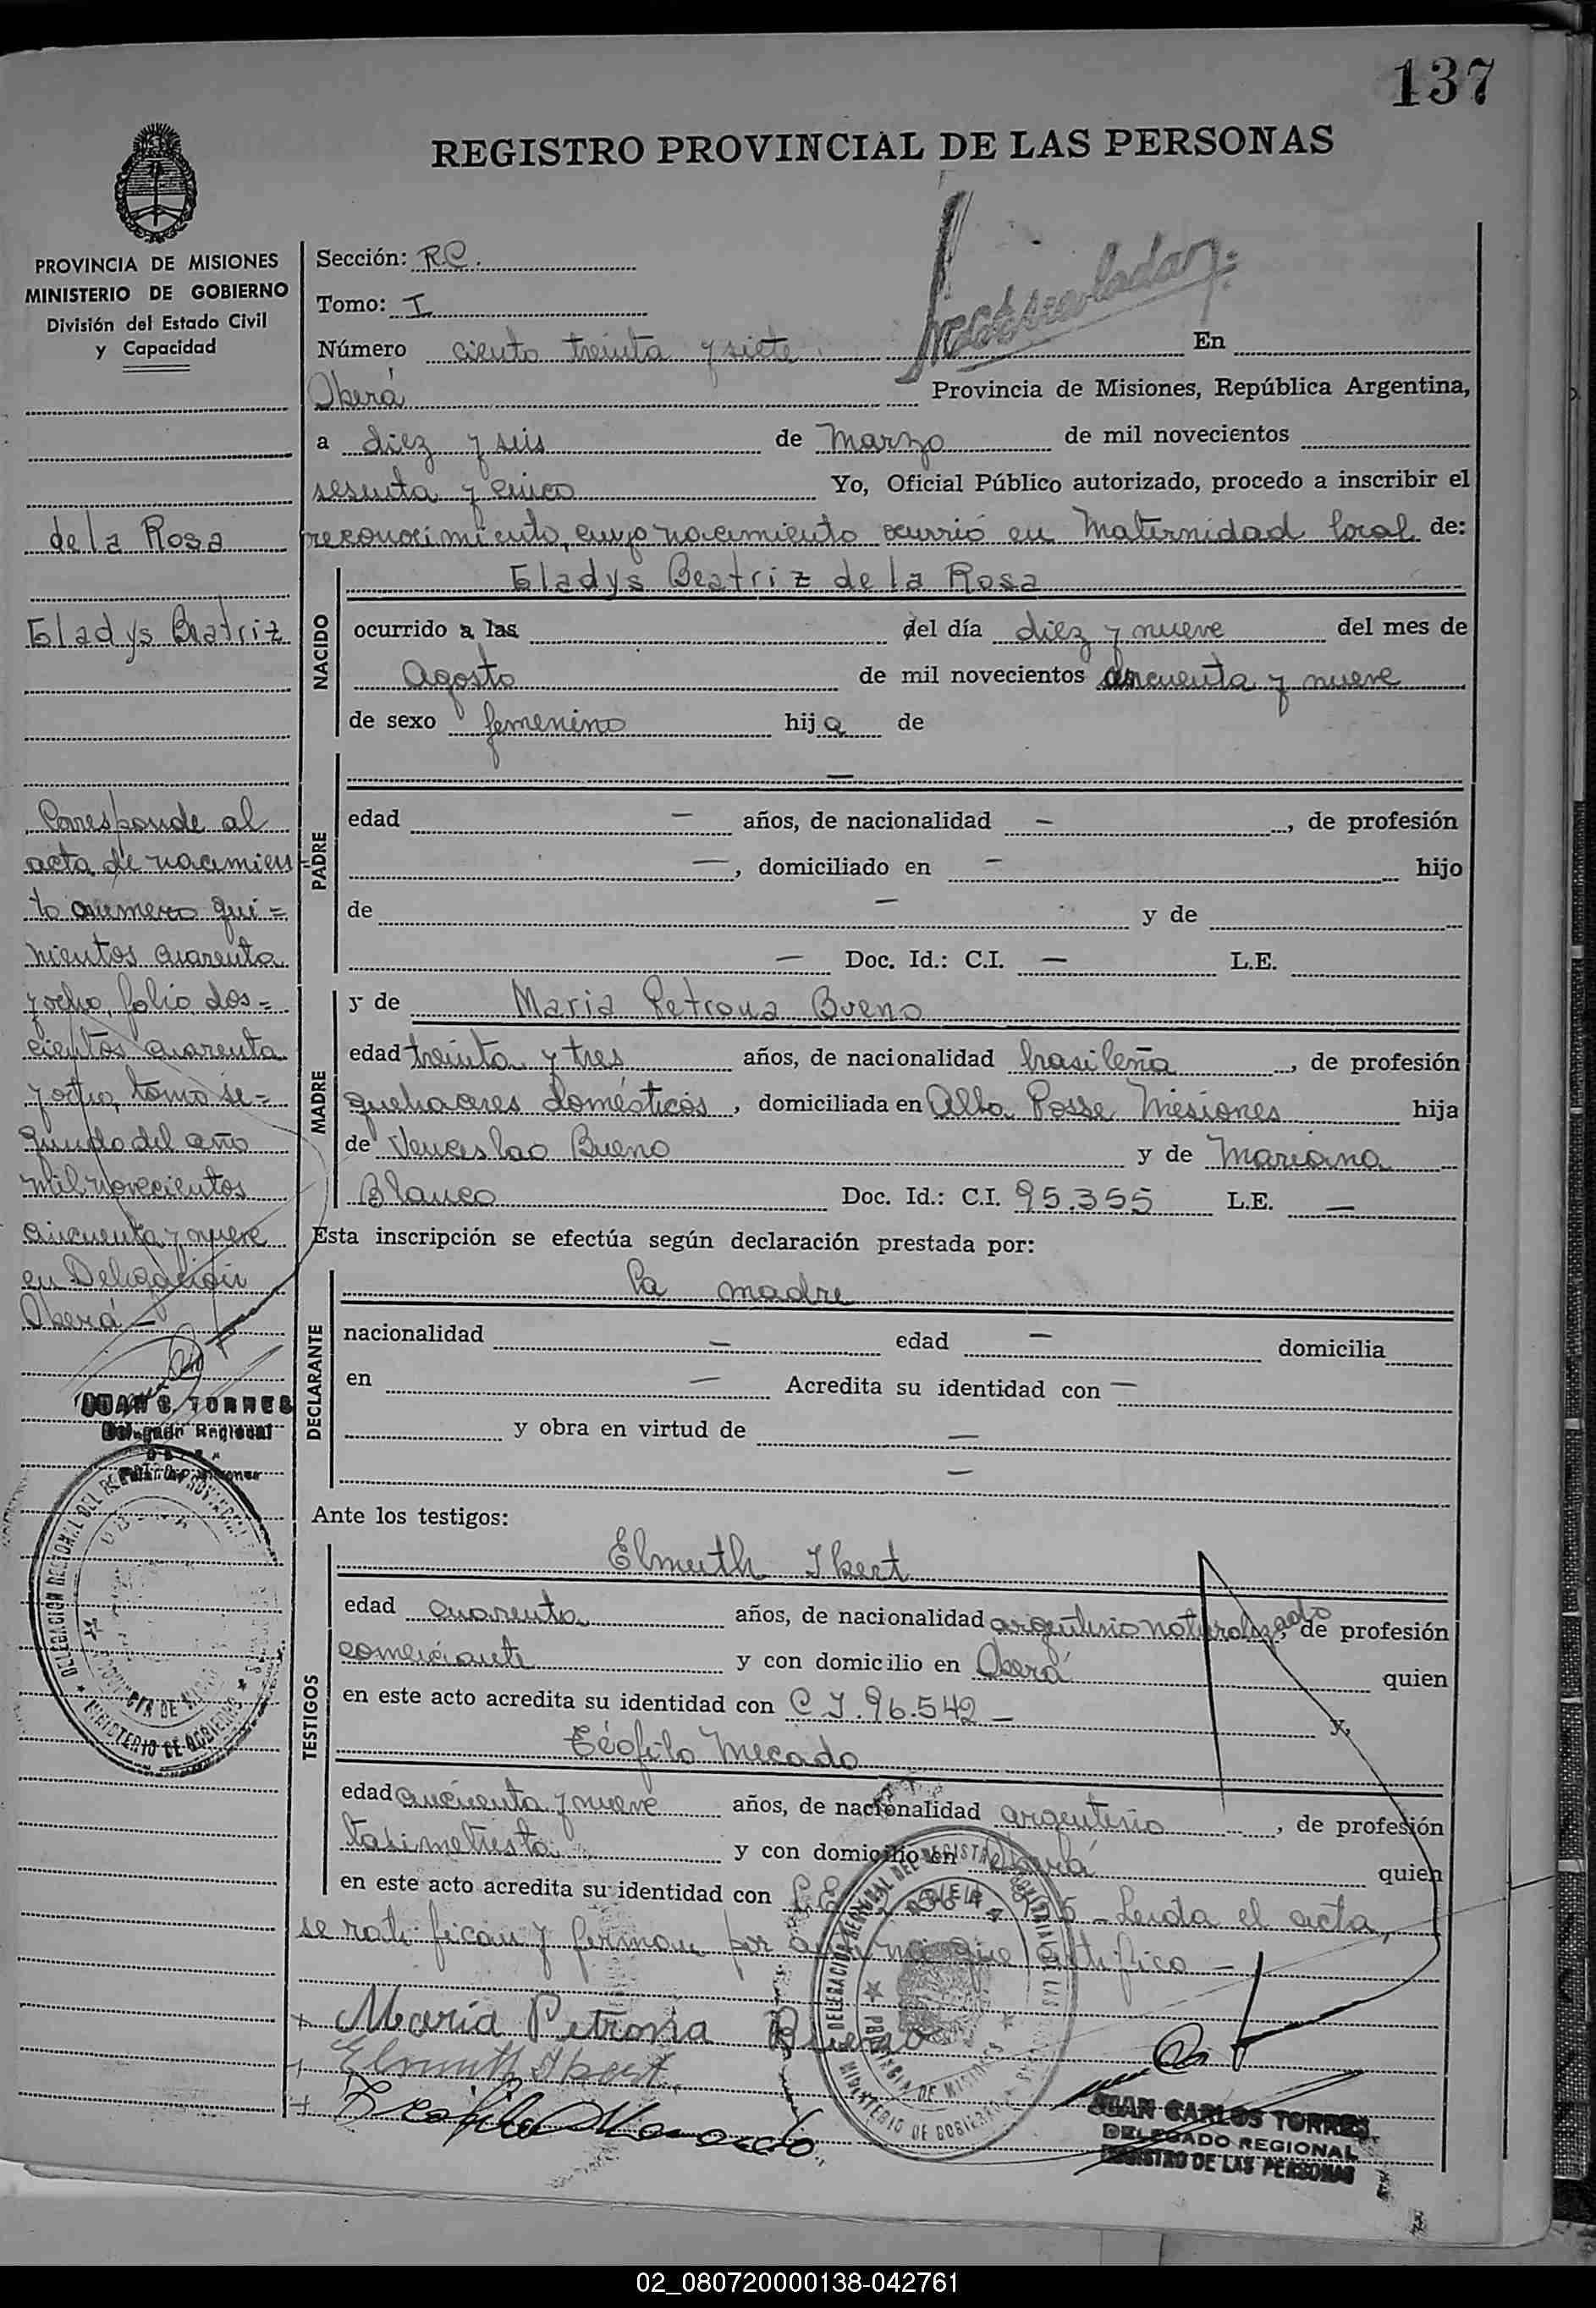 137
REGISTRO PROVINCIAL DE LAS PERSONAS
PROVINCIA DE MISIONES
MINISTERIO DE GOBIERNO
División del Estado Civil
y Capacidad
de la Rosa
Gladys Beatriz
Corresponde al
acta de nacimien
to número qui=
nientos cuarenta
y ocho, folio dos=
cientos cuarenta
y ocho, tomo se=
gundo del año
mil novecientos
cincuenta y nueve
en Delegación
Oberá -
JUAN C. TORRES
Delegado Regional
Sección: R.C.
Tomo: I
Número ciento treinta y siete. En
Oberá Provincia de Misiones, República Argentina,
a diez y seis de Marzo de mil novecientos
sesenta y cinco Yo, Oficial Público autorizado, procedo a inscribir el
reconocimiento, cuyo nacimiento ocurrió en Maternidad local de:
NACIDO
Gladys Beatriz de la Rosa
ocurrido a las del día diez y nueve del mes de
Agosto de mil novecientos cincuenta y nueve
de sexo femenino hija de
PADRE
—
edad — años, de nacionalidad — , de profesión
— , domiciliado en — hijo
de — y de
— Doc. Id.: C.I. — L.E.
MADRE
y de Maria Petrona Bueno
edad treinta y tres años, de nacionalidad brasileña , de profesión
quehaceres domésticos , domiciliada en Alba Posse Misiones hija
de Venceslao Bueno y de Mariana
Blanco Doc. Id.: C.I. 95.355 L.E. —
Esta inscripción se efectúa según declaración prestada por:
DECLARANTE
La madre
nacionalidad — edad — domicilia
en — Acredita su identidad con —
y obra en virtud de —
—
Ante los testigos:
TESTIGOS
Elmuth Ikert
edad cuarenta años, de nacionalidad argentino naturalizado, de profesión
comerciante y con domicilio en Oberá quien
en este acto acredita su identidad con C I. 96.542 — y
Teófilo Mercado
edad cincuenta y nueve años, de nacionalidad argentino , de profesión
taximetrista y con domicilio en Oberá quien
en este acto acredita su identidad con - Leida el acta,
se ratifican y firman por ante mí que certifico -
+ María Petrona Bueno
+ Elmuth Ikert
+ Teofilo Mercado
DELEGACION REGIONAL DEL REGISTRO PROVINCIAL DE LAS
PROVINCIA DE MISIONES
MINISTERIO DE GOBIERNO
JUAN CARLOS TORRES
DELEGADO REGIONAL
REGISTRO DE LAS PERSONAS
02_080720000138-042761